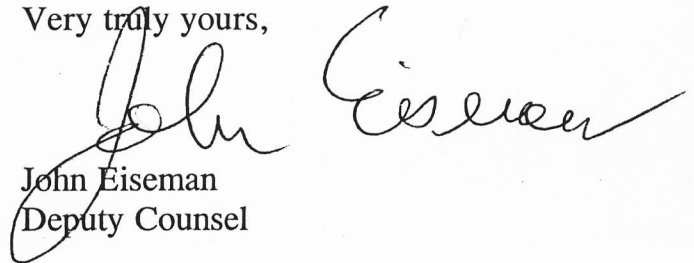 Very truly yours,
John Eiseman
John Eiseman
Deputy Counsel